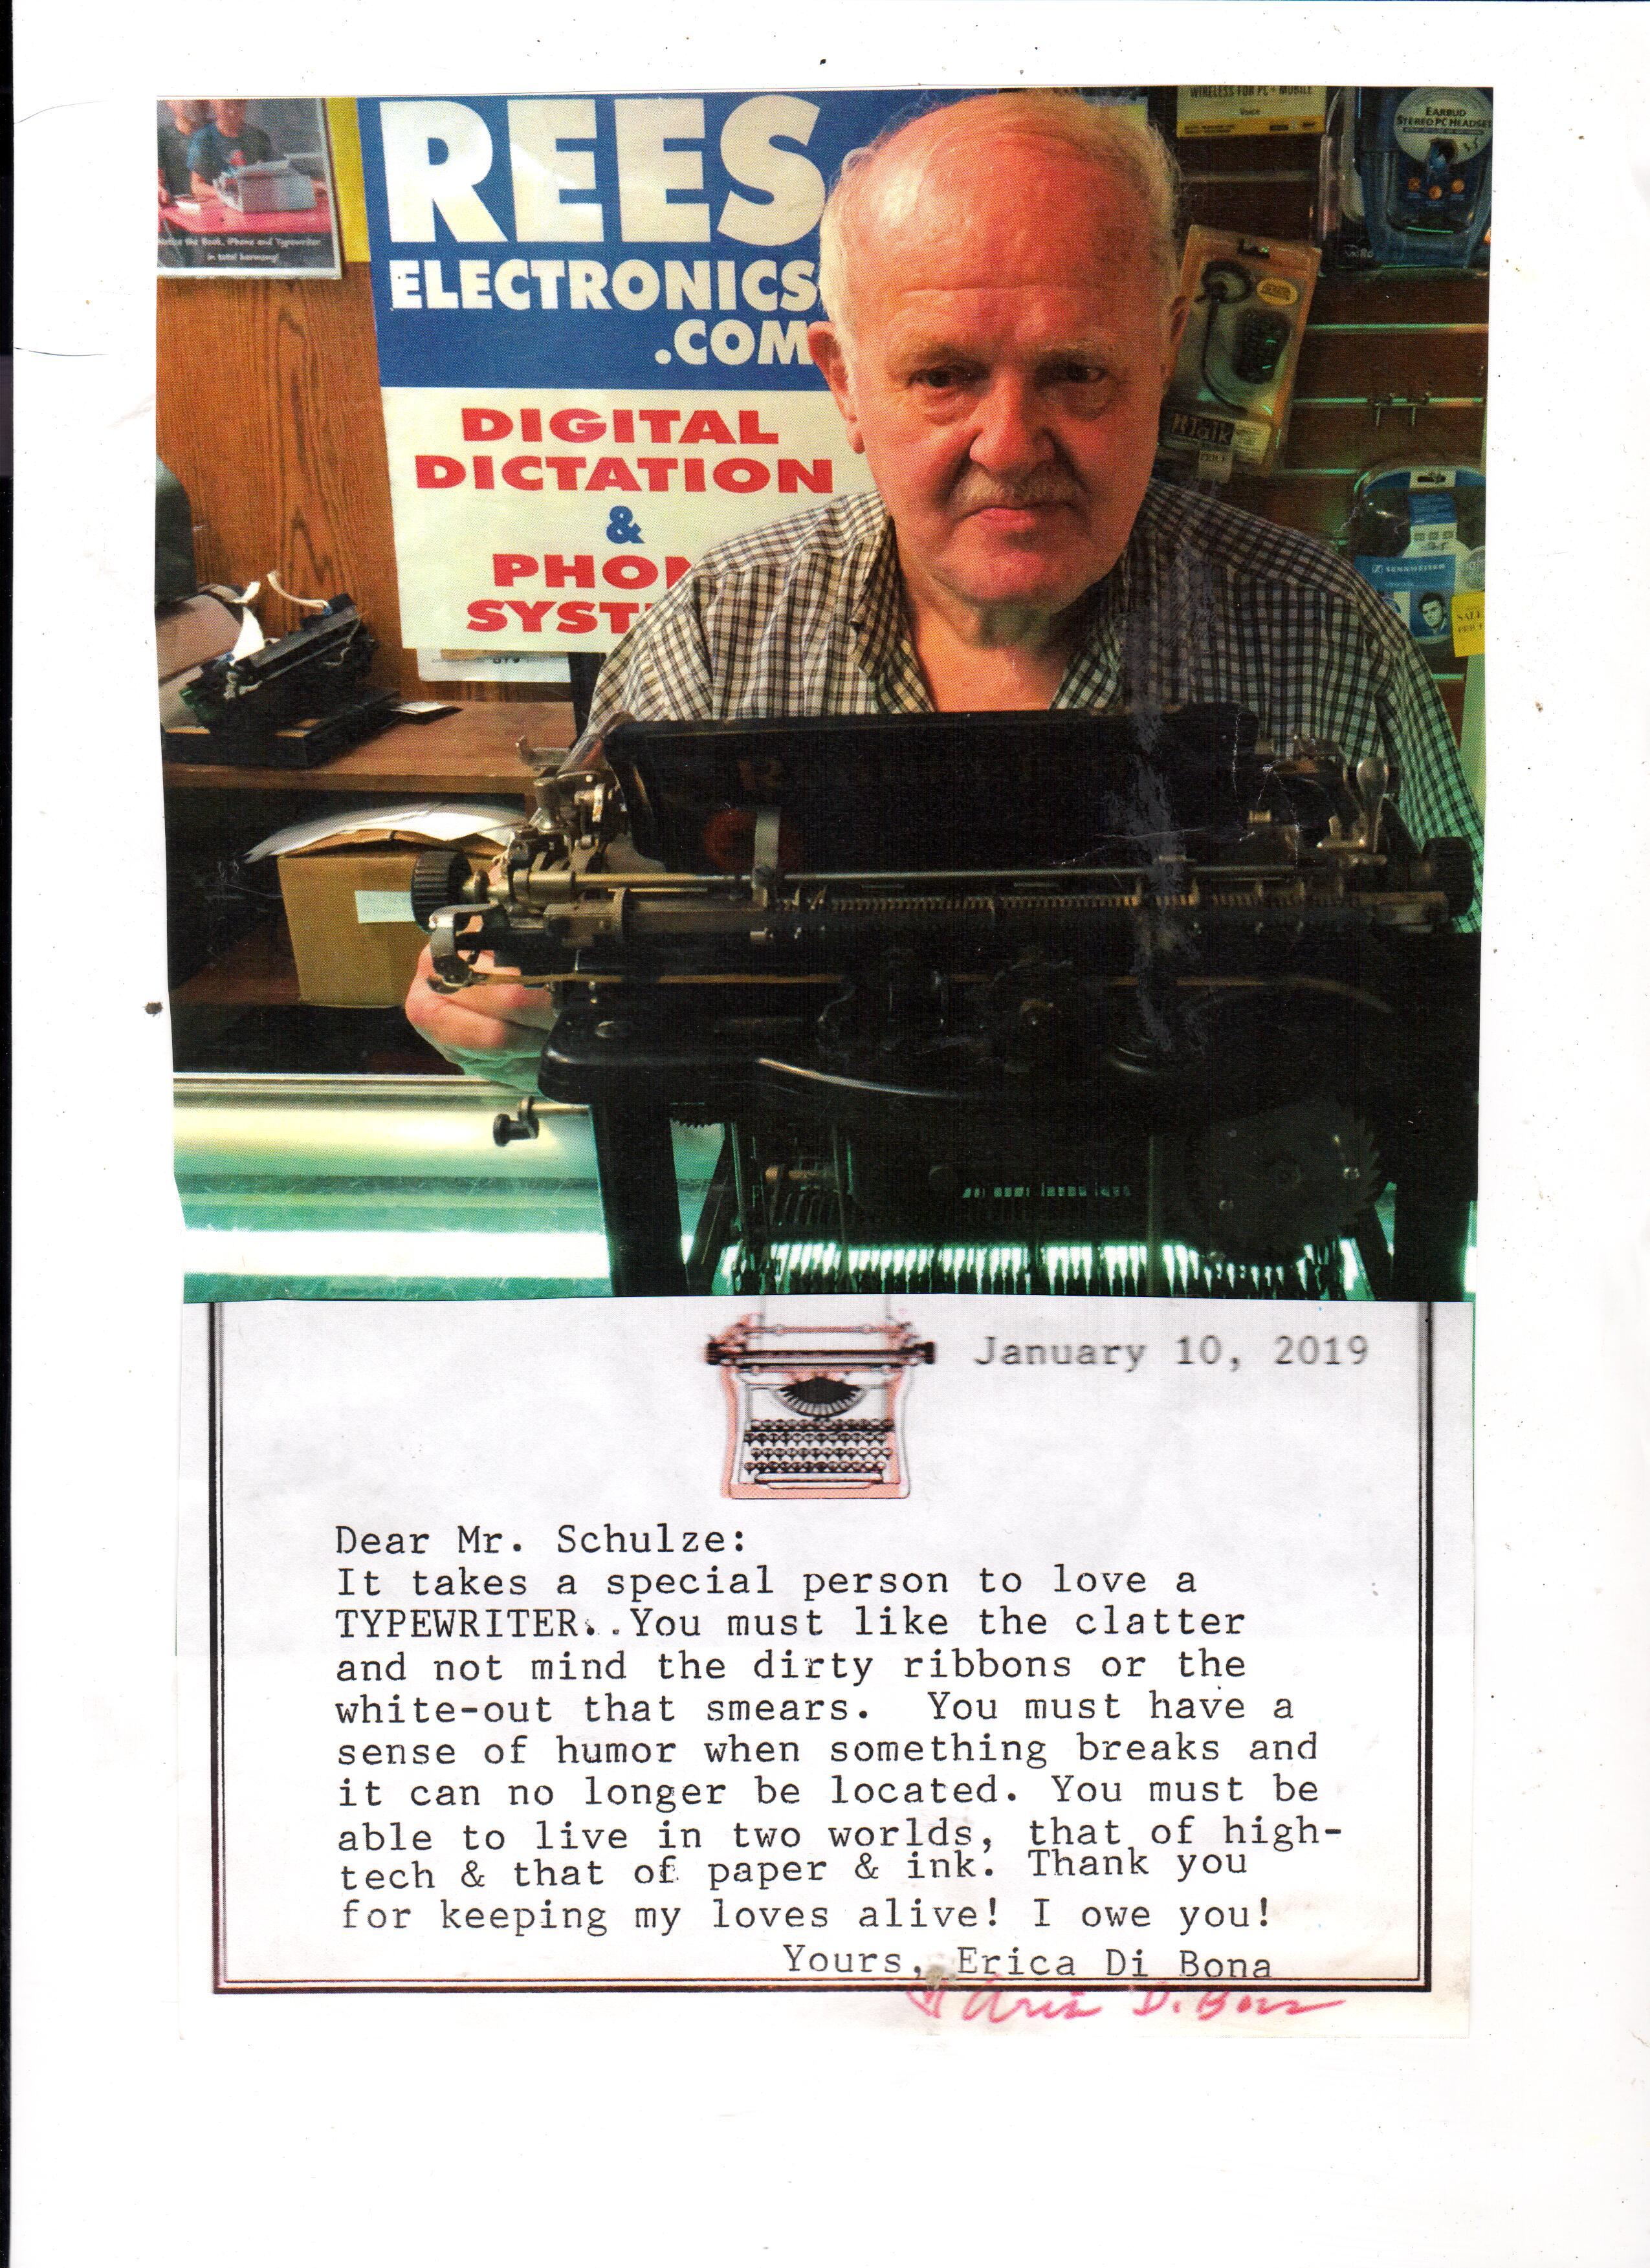 REES
ELECTRONICS
.COM
DIGITAL
DICTATION
&
PHON
SYST
the Book, iPhone and Typewriter
in total harmony!
WIRELESS FOR PC + MOBILE
Voice
EARBUD
STEREO PC HEADSET
SENNHEISER
January 10, 2019
Dear Mr. Schulze:
It takes a special person to love a
TYPEWRITER...You must like the clatter
and not mind the dirty ribbons or the
white-out that smears. You must have a
sense of humor when something breaks and
it can no longer be located. You must be
able to live in two worlds, that of high-
tech & that of paper & ink. Thank you
for keeping my loves alive! I owe you!
Yours, Erica Di Bona
Erica Di Bona